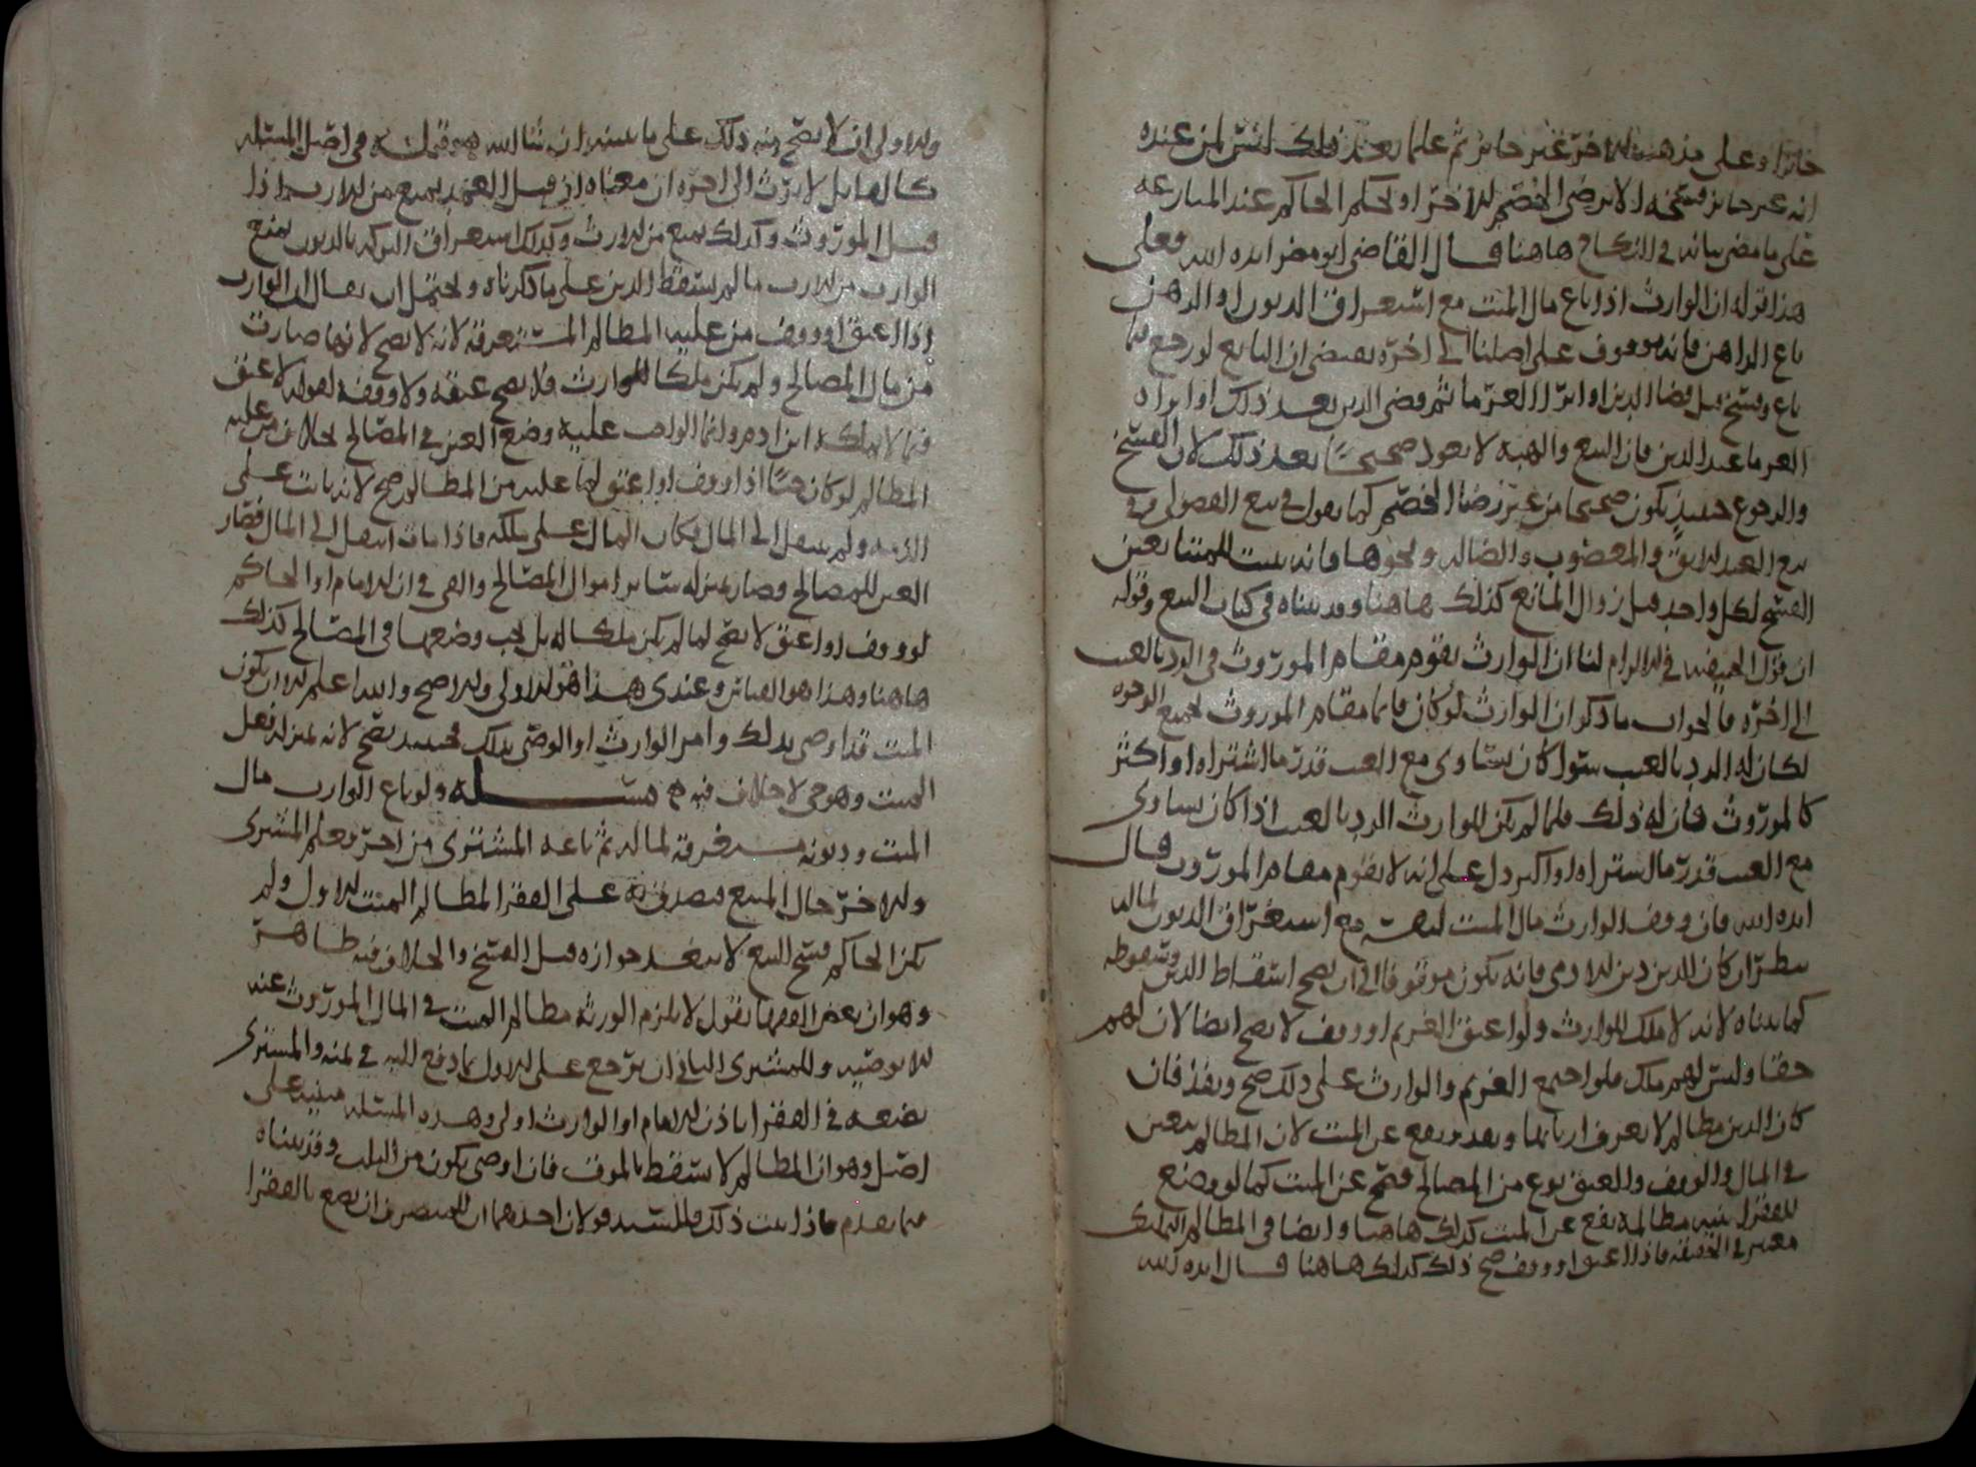 جائزا وعلى مذهب الاخر غير جائز ثم علما بعد ذلك ليس لمن عنده
انه غير جائز فسخه الا برضى الخصم الاخر او بحكم الحاكم عند المنازعه
على ما مضى بيانه في النكاح هاهنا قال القاضي ابو مضر ايده الله وعلى
هذا قوله ان الوارث اذا باع مال الميت مع استغراق الديون او الراهن
باع الراهن فانه موقوف على اصلنا الى اخره يقتضي ان البايع لو رجع فيما
باع وفسخ قبل قضا الدين او ابرا الغرما ثم قضى الدين بعد ذلك او ابراه
الغرما عن الدين فان البيع والهبه لا يعود صحيحا بعد ذلك لان الفسخ
والرجوع حينئذ يكون صحيحا من غير رضا الخصم كما يقول في بيع الفضولي وفي
بيع العبد الابق والمغصوب والضاله ونحوها فانه يثبت للمتبايعين
الفسخ لكل واحد قبل زوال المانع كذلك هاهنا وقد بيناه في كتاب البيع وقوله
ان قول الحنيفيه في الالزام لنا ان الوارث يقوم مقام الموروث في الرد بالعيب
الى اخره فالجواب ما ذكر ان الوارث لو كان قائما مقام الموروث لجميع الوجوه
لكان له الرد بالعيب سوا كان يساوي مع العيب قدر ما اشتراه او اكثر
كالموروث فان له ذلك فلما لم يكن للوارث الرد بالعيب اذا كان يساوي
مع العيب قدر ما اشتراه او اكثر دل على انه لا يقوم مقام الموروث قال
ايده الله فان وقف الوارث مال الميت لنفسه مع استغراق الديون لماله
ينظر ان كان الدين دين الادمي فانه يكون موقوفا الى ان يصح اسقاط الدين وسقوطه
كما بيناه لانه لا ملك للوارث ولو اعتق الغريم او وقف لا يصح ايضا لان لهم
حقا وليس لهم ملك فلو اجتمع الغريم والوارث على ذلك صح ونفذ فان
كان الدين مظالم لا يعرف اربابها ونفذ ويقع عن الميت لان المظالم يتعين
في المال والوقف والعتق نوع من المصالح فصح عن الميت كما لو وضع
للفقرا بنيه مظالمه يقع عن الميت كذلك هاهنا وايضا في المظالم التمليك
معتبر في الحقيقه فاذا اعتق او وقف صح ذلك كذلك هاهنا قال ايده الله
والاولى ان لا يصح منه ذلك على ما نبينه ان شا الله في اصل المسئله
كالقاتل لا يرث الى اخره ان معناه ان قتل العمد يمنع من الارث اذا
قتل الموروث وكذلك يمنع من الارث وكذلك استغراق التركه بالديون يمنع
الوارث من الارث ما لم يسقط الدين على ما ذكرناه ويحتمل ان يقال ان الوارث
اذا اعتق او وقف من عليه المظالم المستغرقه لانه لا يصح لانها صارت
من مال المصالح ولم يكن ملكا للوارث فلا يصح عتقه ولا وقفه لقوله لا عتق
فيما لا يملكه ابن ادم وانما الواجب عليه وضع العين في المصالح بخلاف من عليه
المظالم لو كان حيا اذا وقف او اعتق لما عليه من المظالم صح لانه ثابت على
الذمه ولم ينتقل الى المال فكان المال على ملكه فاذا مات انتقل الى المال فصار
العين للمصالح وصار بمنزله سائر اموال المصالح والفي في ان الامام او الحاكم
لو وقف او اعتق لا يصح لما لم يكن ملكا له بل يجب وضعها في المصالح كذلك
هاهنا وهذا هو القياس وعندي هذا هو الاولى والاصح والله اعلم الا ان يكون
الميت قد اوصى بذلك وامر الوارث او الوصي بذلك فحينئذ يصح لانه بمنزله فعل
الميت وهو حي لا خلاف فيه مسئله ولو باع الوارث مال
الميت وديونه مستغرقه لماله ثم باعه المشتري من اخر وعلم المشتري
والاخر حال المبيع فصدق به على الفقرا لمظالم الميت الاول ولم
يكن الحاكم فسخ البيع لا يبعد جوازه قبل الفسخ والخلاف فيه ظاهر
وهو ان بعض الفقها يقول لا يلزم الورثه مظالم الميت في المال الموروث عنه
الا بوصيه وللمشتري الثاني ان يرجع على الاول بما دفع اليه في ثمنه والمشتري
يضعه في الفقرا باذن الامام او الوارث اولى وهذه المسئله مبنيه على
اصل وهو ان المظالم لا يسقط بالموت فان اوصى يكون من الثلث وقد بيناه
فيما تقدم فاذا ثبت ذلك فللسيد قولان احدهما ان للمتصرف ان يضع بالفقرا